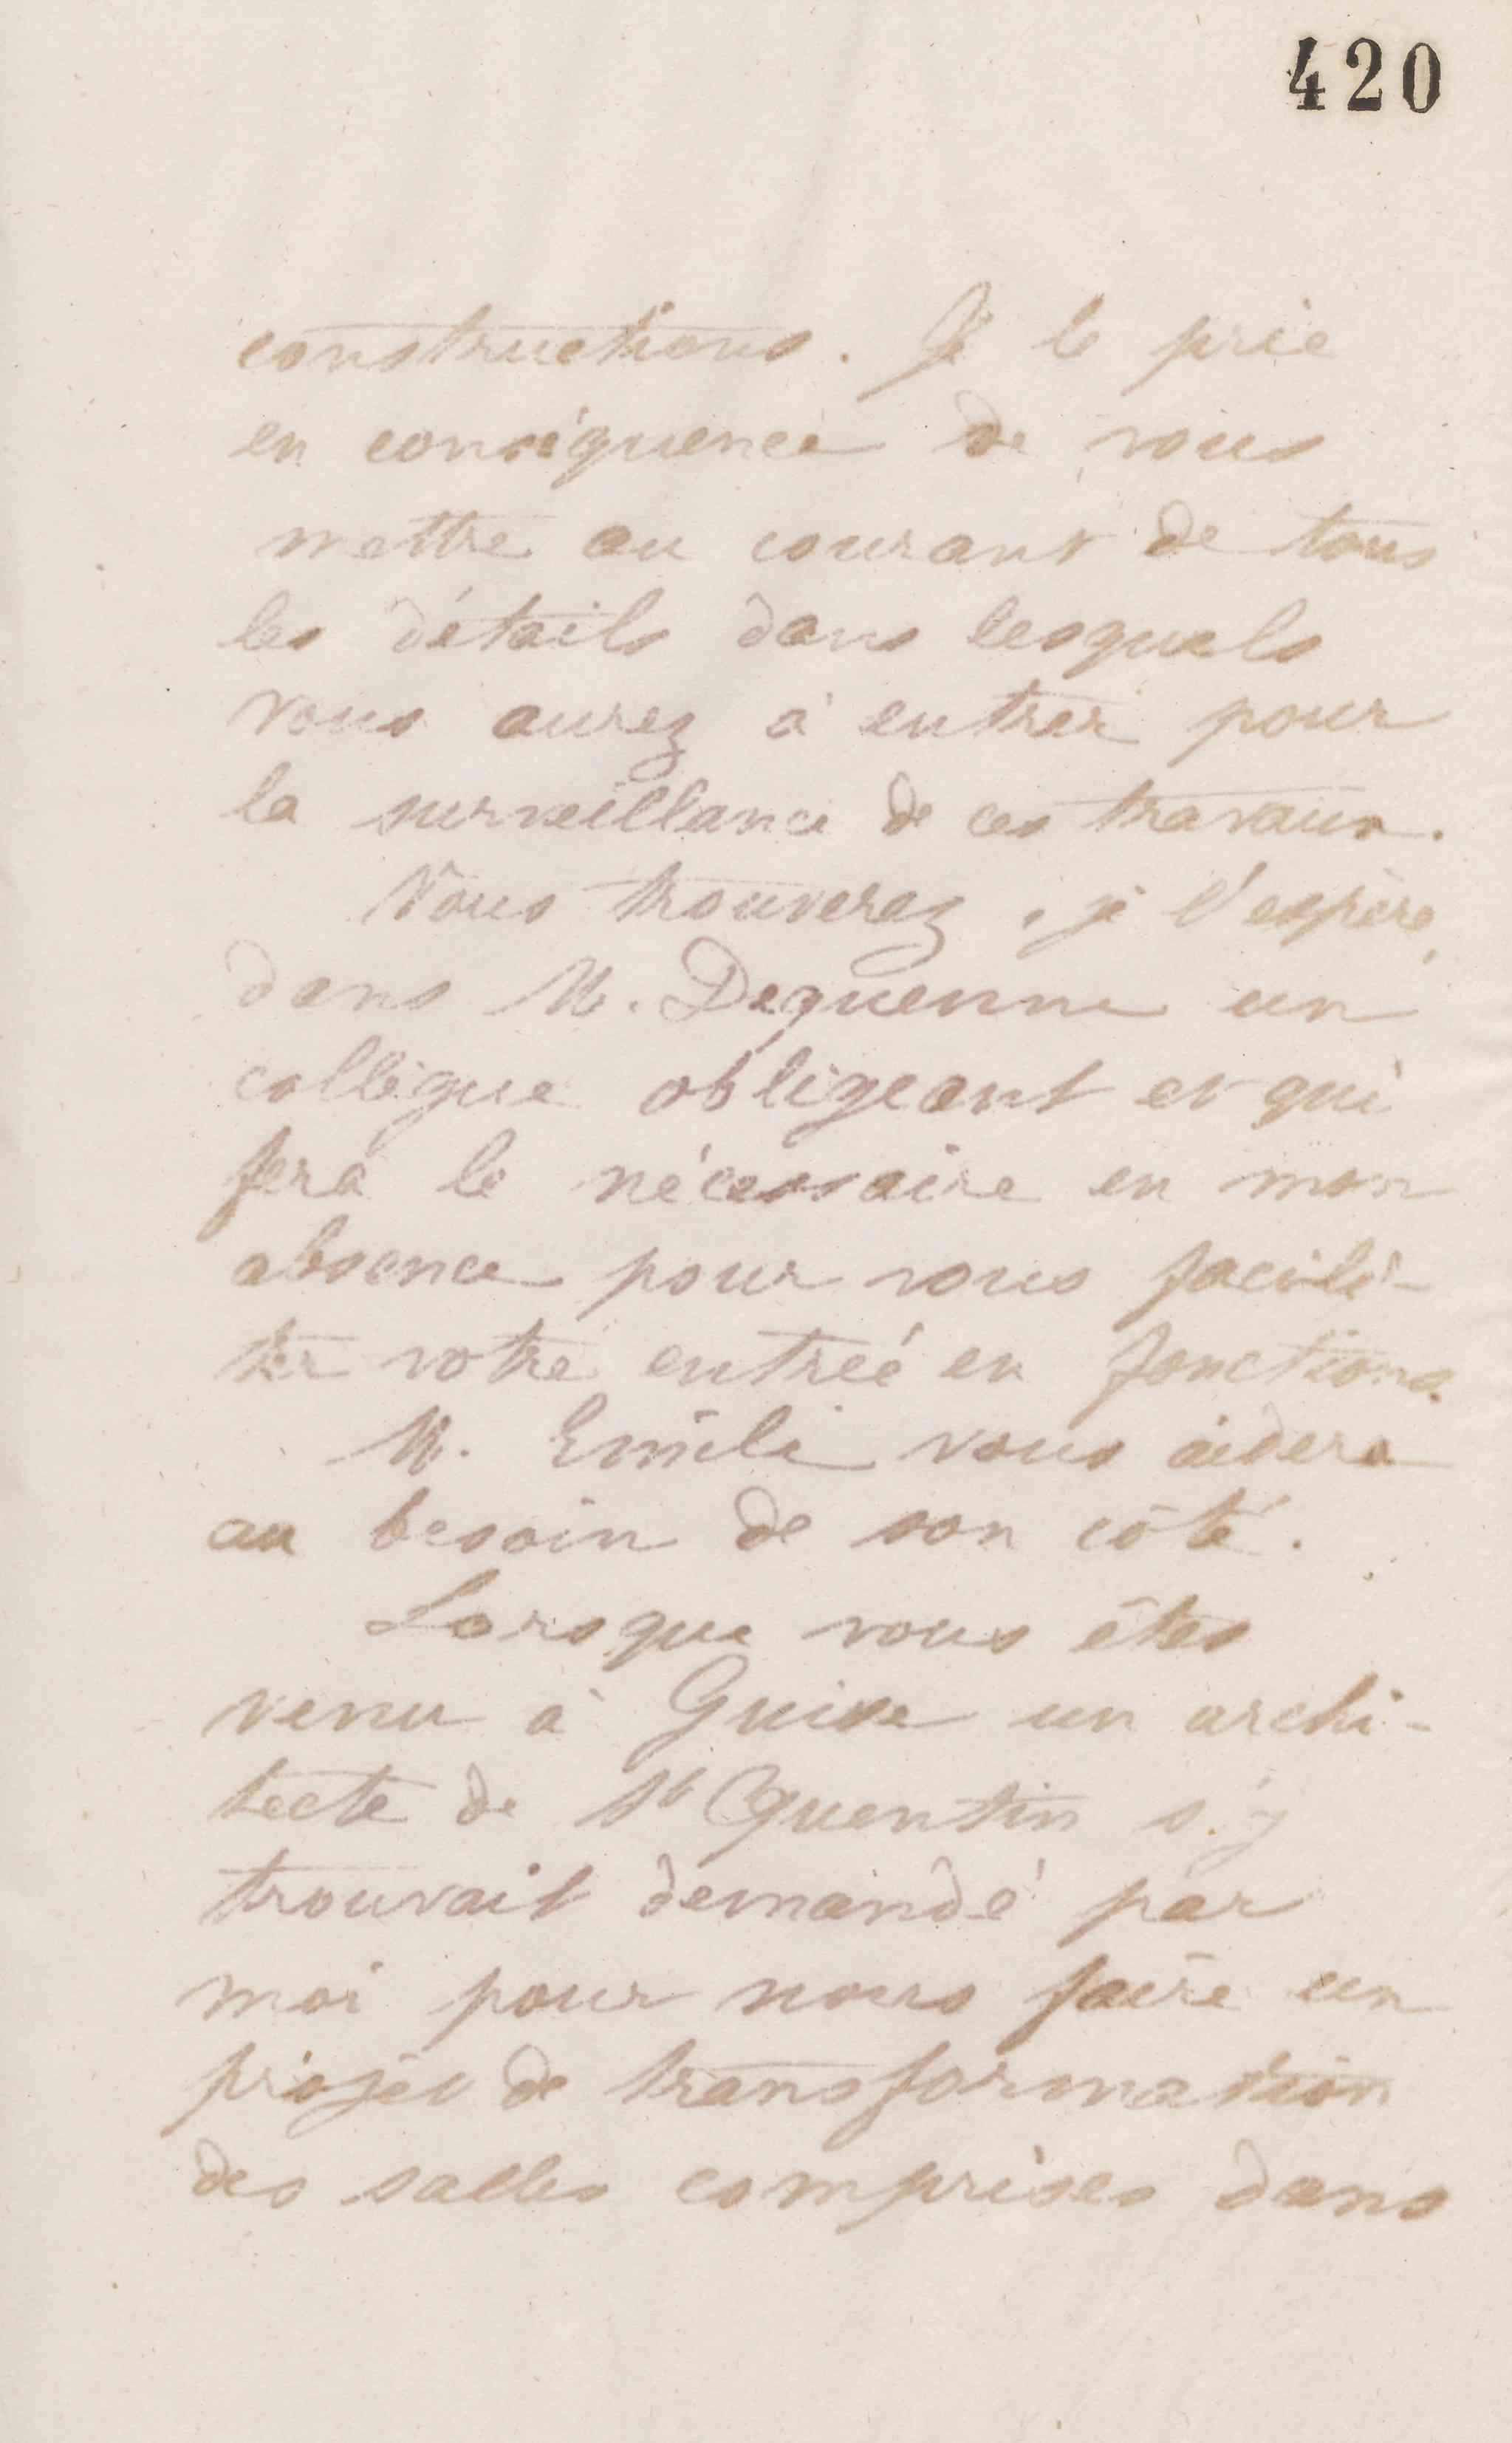 420
constructions. Je le prie
en conséquence de vous
mettre au courant de tous
les détails dans lesquels
vous aurez à entrer pour
la surveillance de ces travaux.
Vous trouverez, je l'espère,
dans M. Dequenne un
collègue obligeant et qui
fera le nécessaire en mon
absence pour vous facili-
ter votre entrée en fonctions.
M. Emile vous aidera
au besoin de son côté.
Lorsque vous êtes
venu à Guise un archi-
tecte de St Quentin s'y
trouvait demandé par
moi pour nous faire un
projet de transformation
des salles comprises dans